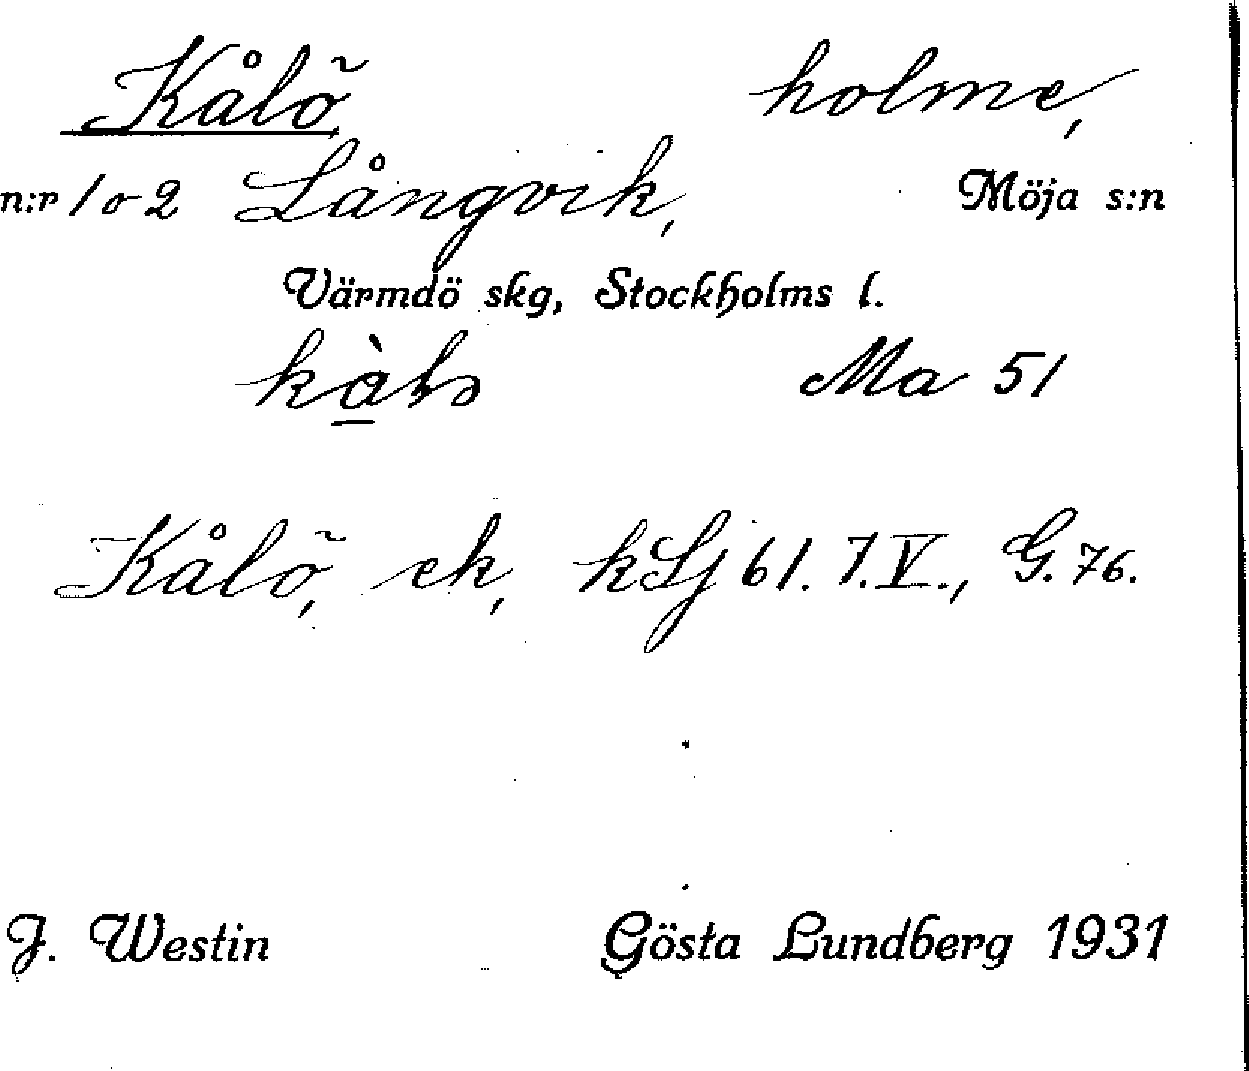 Kålö holme,
n:r 1 o 2 Långvik, Möja s:n
Värmdö skg, Stockholms l.
Ma 51
Kålö, ek, kLj 61. 7. V., G. 76.
J. Westin Gösta Lundberg 1931